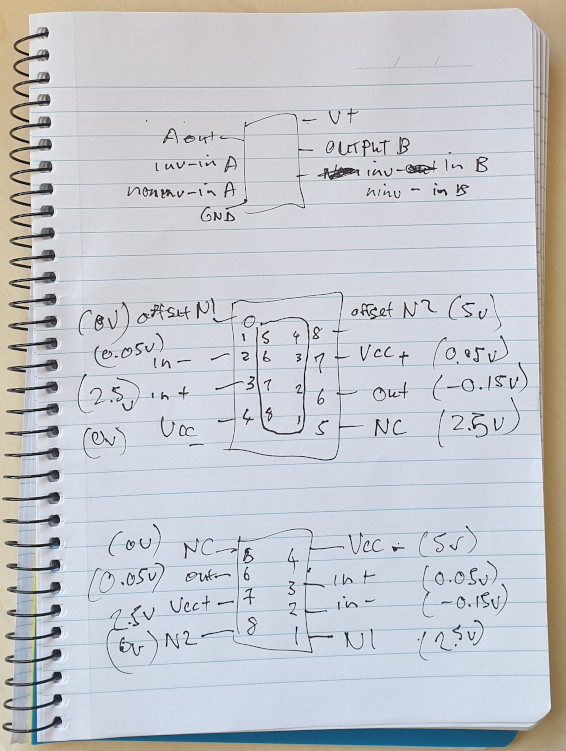 / / /
V+
Aout OUTPUT B
inv-in A inv- in B
noninv-in A ninv - in B
GND
(0V) offset N1 1 5 4 8 offset N2 (5v)
(0.05V) in- 2 6 3 7 Vcc+ (0.05v)
(2.5v) in+ 3 7 2 6 out (-0.15v)
(0v) Vcc 4 8 1 5 NC (2.5v)
(0v) NC 5 4 Vcc - (5v)
(0.05v) out 6 3 in+ (0.05v)
2.5v Vcc+ 7 2 in- (-0.15v)
(0v) N2 8 1 N1 (2.5v)